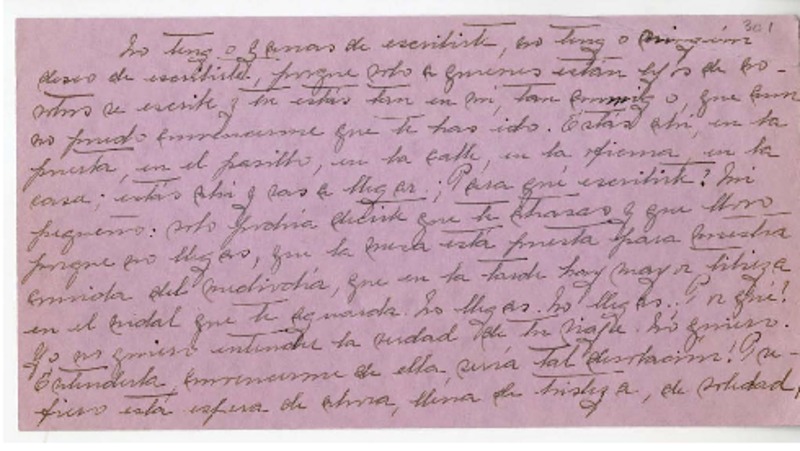 301
No tengo ganas de escribirte, no tengo ningún
deseo de escribirte, porque solo a quienes están lejos de no-
sotros se escribe y tú estás tan en mí, tan conmigo, que aun
no puedo convencerme que te has ido. Estás ahí, en la
puerta, en el pasillo, en la calle, en la oficina, en la
casa; estás ahí y vas a llegar. ¿Para qué escribirte? Mi
pequeño: solo podría decirte que te atrasas y que lloro
porque no llegas, que la mesa está puesta para nuestra
comida del mediodía, que en la tarde hay mayor tibieza
en el nidal que te aguarda. No llegas. No llegas. ¿Por qué?
Yo no quiero entender la verdad de tu viaje. No quiero.
Entenderla, convencerme de ella, sería tal desolación! Pre-
fiero esta espera de ahora, llena de tristeza, de soledad,